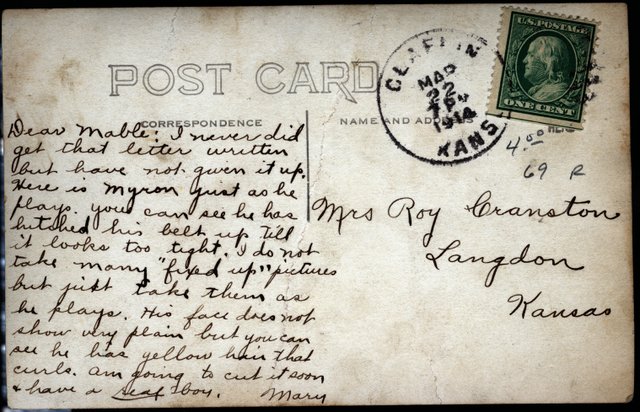 POST CARD
CORRESPONDENCE
NAME AND ADDRESS HERE
CLAFLIN
MAR
22
1914
KANS
U.S. POSTAGE
ONE CENT
4.00
69 R
Dear Mable: I never did
get that letter written
but have not given it up.
Here is Myron just as he
plays. you can see he has
hitched his belt up till
it looks too tight. I do not
take many "fixed up" pictures
but just take them as
he plays. His face does not
show very plain but you can
see he has yellow hair that
curls. am going to cut it soon
& have a real boy. Mary
Mrs Roy Cranston
Langdon
Kansas